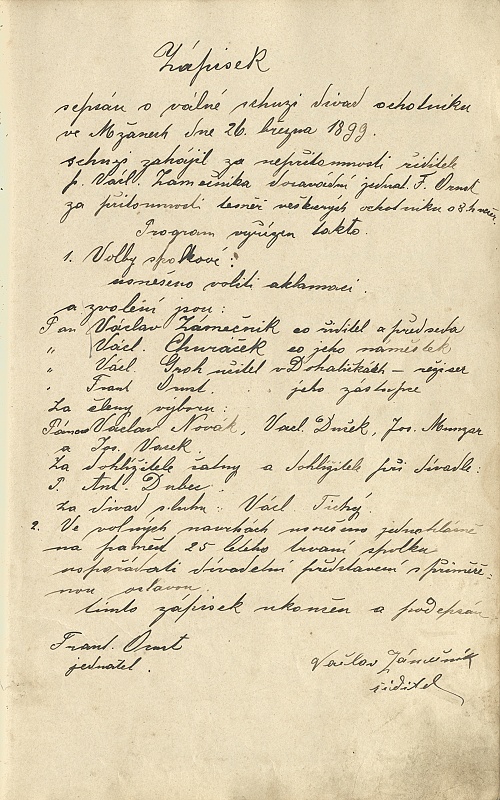 Zápisek
sepsán o válné schuzi divad ochotníku
ve Mžanech dne 26. března 1899.
schuzi zahájil za nepřítomnosti řiditele
p. Václ. Zámečníka dosavádní jednat. F. Ornst
za přítomnosti tesměř veškerých ochotníku o 8 h večer.
Program vyřízen takto.
1. Volby spolkové:
usnešeno voliti aklamací.
a zvoleni jsou:
Pan Václav Zámečník co řiditel a předseda
„ Václ. Churáček co jeho náměstek
„ Václ. Groh učitel v Dohaličkách – režiser
„ Frant Ornst. jeho zástupce
Za členy výboru:
Pánové Václav Novák, Vacl. Dušek, Jos. Munzar
a Jos. Vacek.
Za dohlížitele šatny a dohlížitel při divadle:
P. Ant. Dubec.
Za divad sluhu: Václ. Tichý.
2. Ve volných navrhách usnešeno jednohlasně
na paměď 25 letého trvaní spolku
uspořádati divadelní představení s přiměře-
nou oslavou.
tímto zápisek ukončen a podepsán
Frant. Ornst
jednatel.
Vačlav Zámečník
řiditel